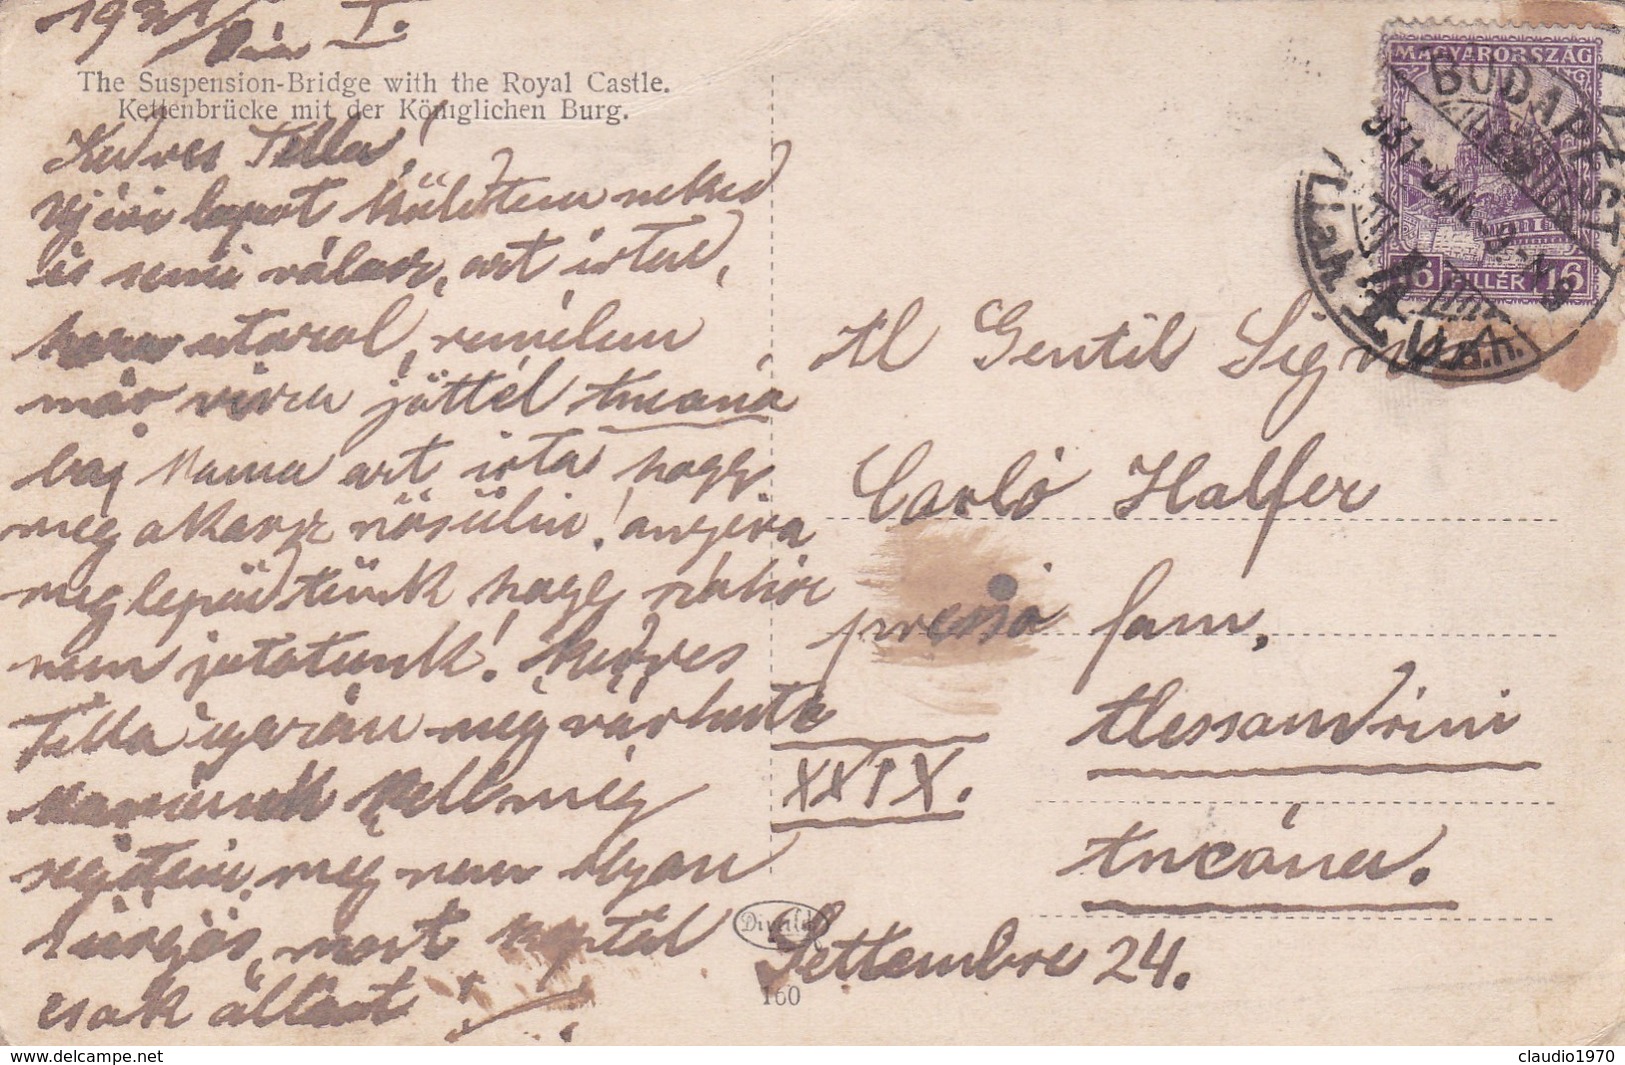 1931
The Suspension-Bridge with the Royal Castle.
Kettenbrücke mit der Königlichen Burg.
Kedves Tilla!
Ujévi lapot küldtem neked
és semi válasz, azt írtad,
haza utazol, remélem
már visza jöttél Ancona
baj Mama azt írta hogy
meg akarsz nősülni! anyira
meglepődtünk hogy
nem jutotunk! Kedves
Tilla igazán meg várhate
Mamának kell még
segiteni, meg nem olyan
sürgös, mert
csak állást
MAGYARORSZÁG
16 FILLÉR 16
BUDAPEST
931-JAN.
Al Gentil Signor
Carló Halfer
presso fam.
Alessandrini
XXIX.
Ancóna.
Settembre 24.
Divald
160
delcampe.net
claudio1970